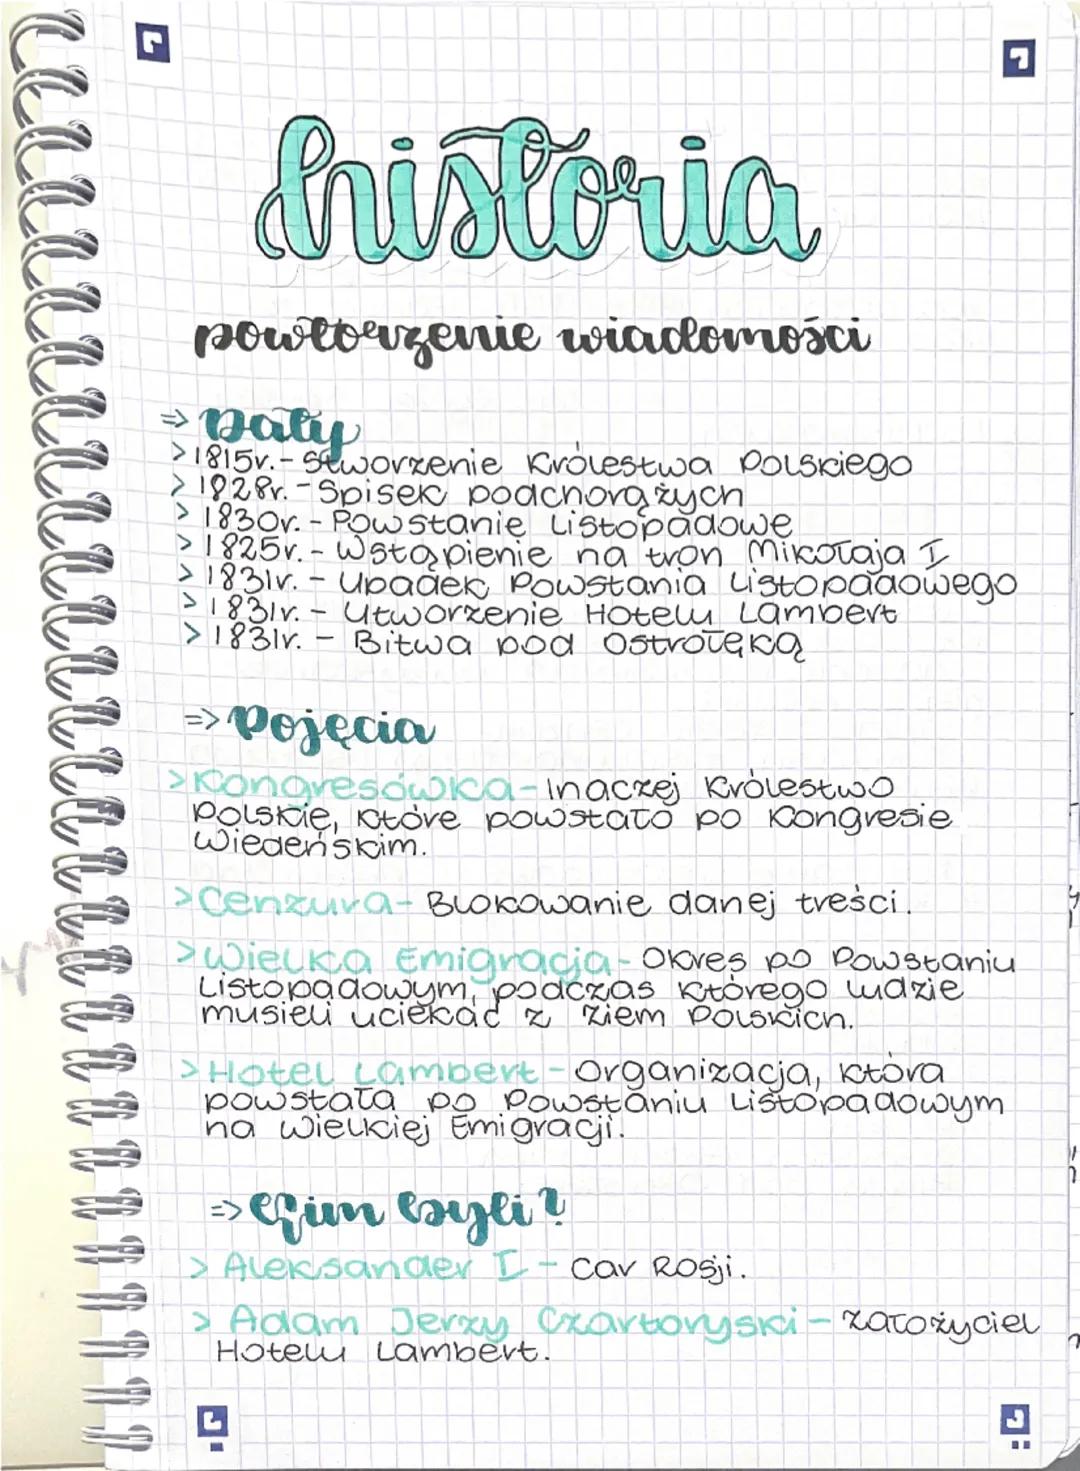 historia
powtórzenie wiadomości
=> Daty
> 1815r. - Stworzenie Królestwa Polskiego
> 1828r. - Spisek podchorążych
> 1830r. - Powstanie Listopadowe
> 1825r. - Wstąpienie na tron Mikołaja I
> 1831r. - Upadek Powstania Listopadowego
> 1831r. - Utworzenie Hotelu Lambert
> 1831r. - Bitwa pod Ostrołęką
=> Pojęcia
> Kongresówka - Inaczej Królestwo
Polskie, które powstało po Kongresie
Wiedeńskim.
> Cenzura - Blokowanie danej treści.
> Wielka Emigracja - Okres po Powstaniu
Listopadowym, podczas którego ludzie
musieli uciekać z ziem Polskich.
> Hotel Lambert - Organizacja, która
powstała po Powstaniu Listopadowym
na Wielkiej Emigracji.
=> Kim byli?
> Aleksander I - Car Rosji.
> Adam Jerzy Czartoryski - założyciel
Hotelu Lambert.